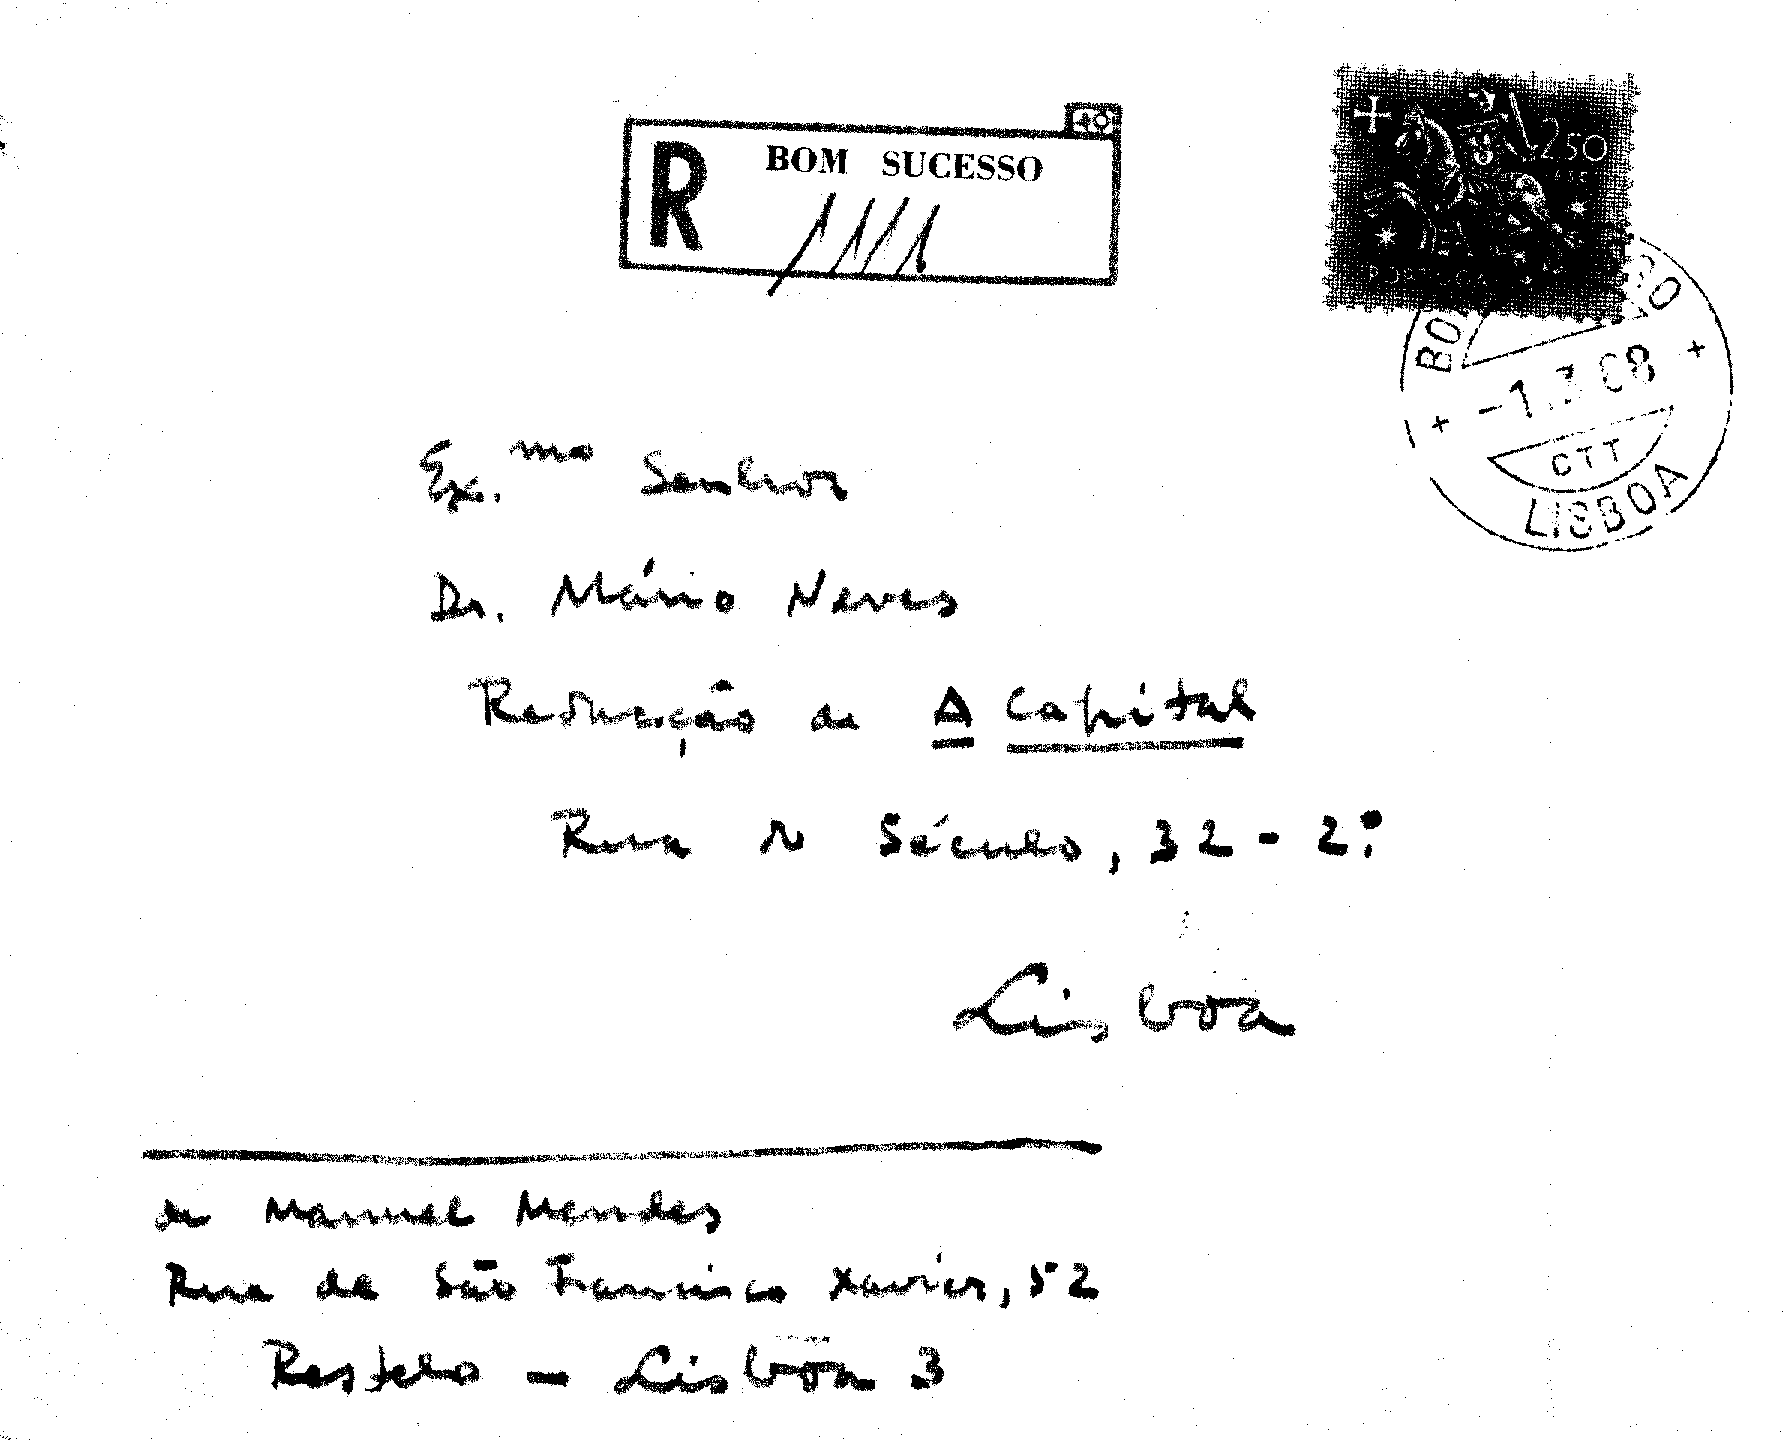 R BOM SUCESSO
1111
250
PORTUGAL
-1.3.68
CTT
LISBOA
Ex.mo Senhor
Dr. Mário Neves
Redacção de A Capital
Rua do Século, 32 - 2.º
Lisboa
de Manuel Mendes
Rua de São Francisco Xavier, 52
Restelo - Lisboa 3